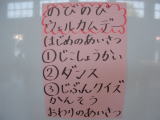 のびのび
ウェルカムデー
はじめのあいさつ
①じこしょうかい
②ダンス
③じぶんクイズ
かんそう
おわりのあいさつ